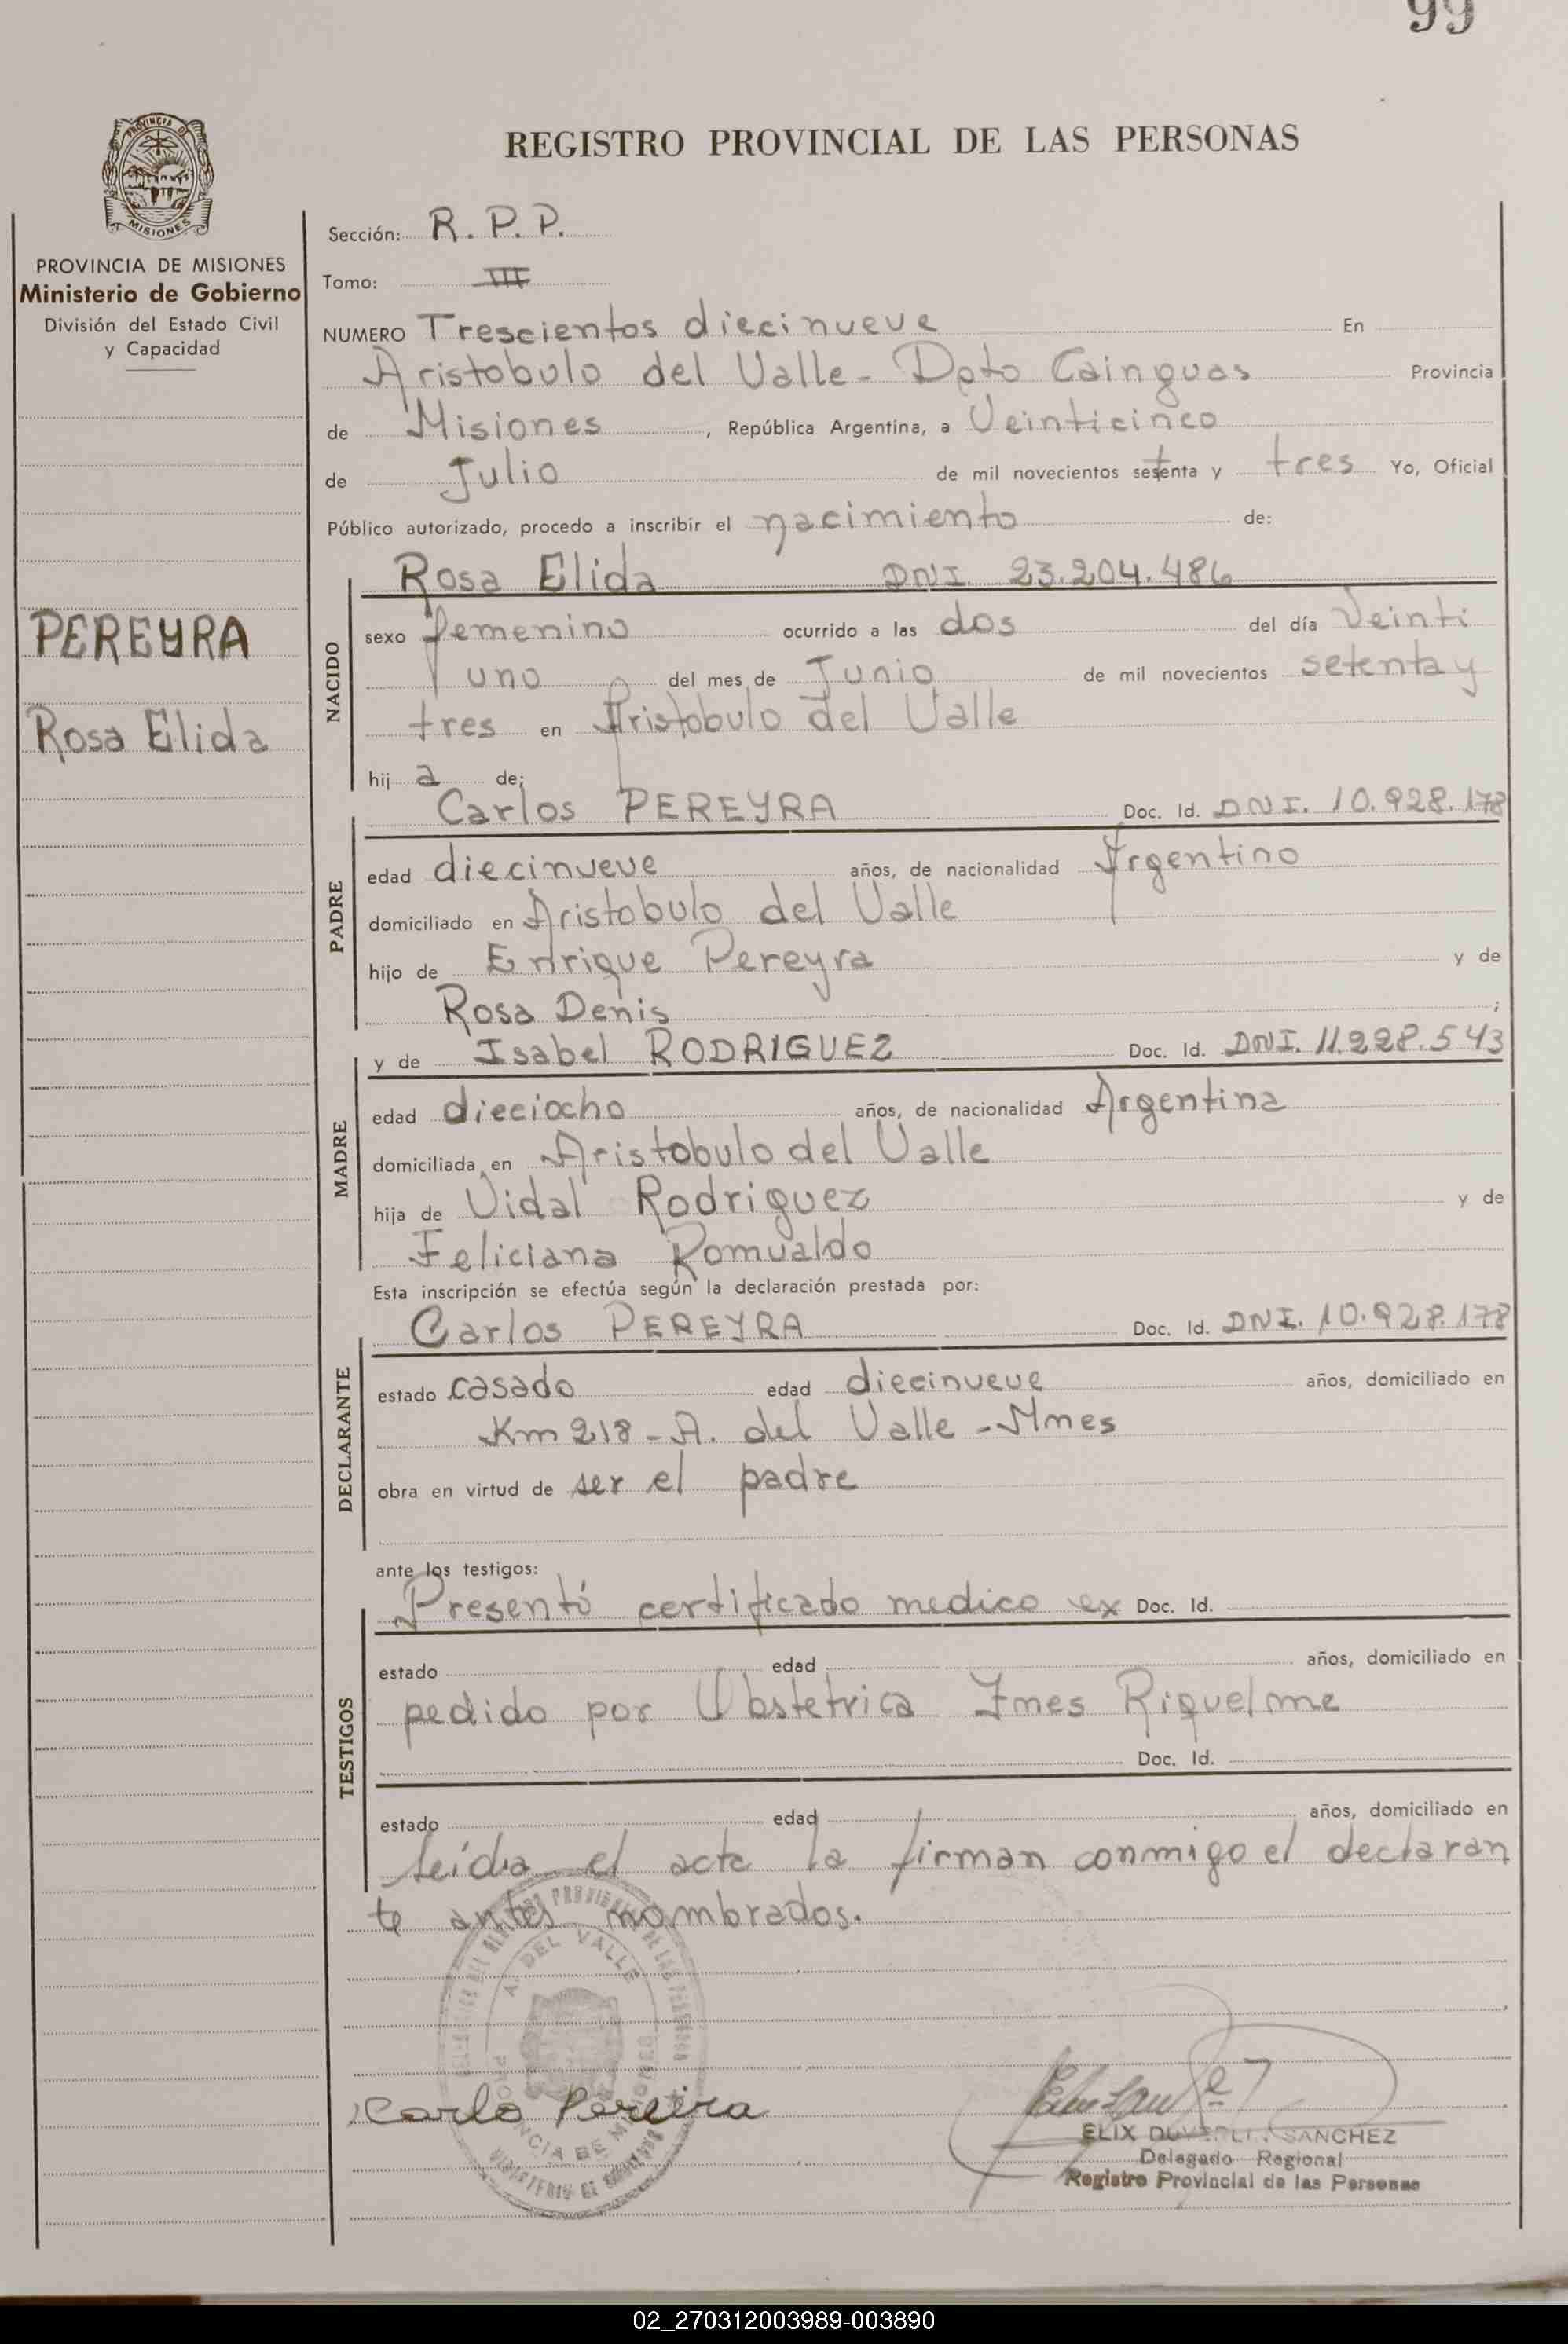 99
REGISTRO PROVINCIAL DE LAS PERSONAS
PROVINCIA DE
MISIONES
PROVINCIA DE MISIONES
Ministerio de Gobierno
División del Estado Civil
y Capacidad
PEREYRA
Rosa Elida
Sección: R. P. P.
Tomo: III
NUMERO Trescientos diecinueve En
Aristobulo del Valle - Dpto Cainguas Provincia
de Misiones, República Argentina, a Veinticinco
de Julio de mil novecientos setenta y tres Yo, Oficial
Público autorizado, procedo a inscribir el nacimiento de:
NACIDO
Rosa Elida DNI. 23.204.486
sexo femenino ocurrido a las dos del día Veinti
uno del mes de Junio de mil novecientos setenta y
tres en Aristobulo del Valle
hij a de;
PADRE
Carlos PEREYRA Doc. Id. DNI. 10.928.178
edad diecinueve años, de nacionalidad Argentino
domiciliado en Aristobulo del Valle
hijo de Enrique Pereyra y de
Rosa Denis ;
MADRE
y de Isabel RODRIGUEZ Doc. Id. DNI. 11.228.543
edad dieciocho años, de nacionalidad Argentina
domiciliada en Aristobulo del Valle
hija de Vidal Rodriguez y de
Feliciana Romualdo
Esta inscripción se efectúa según la declaración prestada por:
DECLARANTE
Carlos PEREYRA Doc. Id. DNI. 10.928.178
estado casado edad diecinueve años, domiciliado en
Km 218 - A. del Valle - Mnes
obra en virtud de ser el padre
ante los testigos:
TESTIGOS
Presentó certificado medico ex Doc. Id.
estado edad años, domiciliado en
pedido por Obstetrica Ines Riquelme
Doc. Id.
estado edad años, domiciliado en
leída el acta la firman conmigo el declaran
te antes nombrados.
A. DEL VALLE
PROVINCIA DE MISIONES
Carlo Pereira
SANCHEZ
Delegado Regional
Registro Provincial de las Personas
02_270312003989-003890